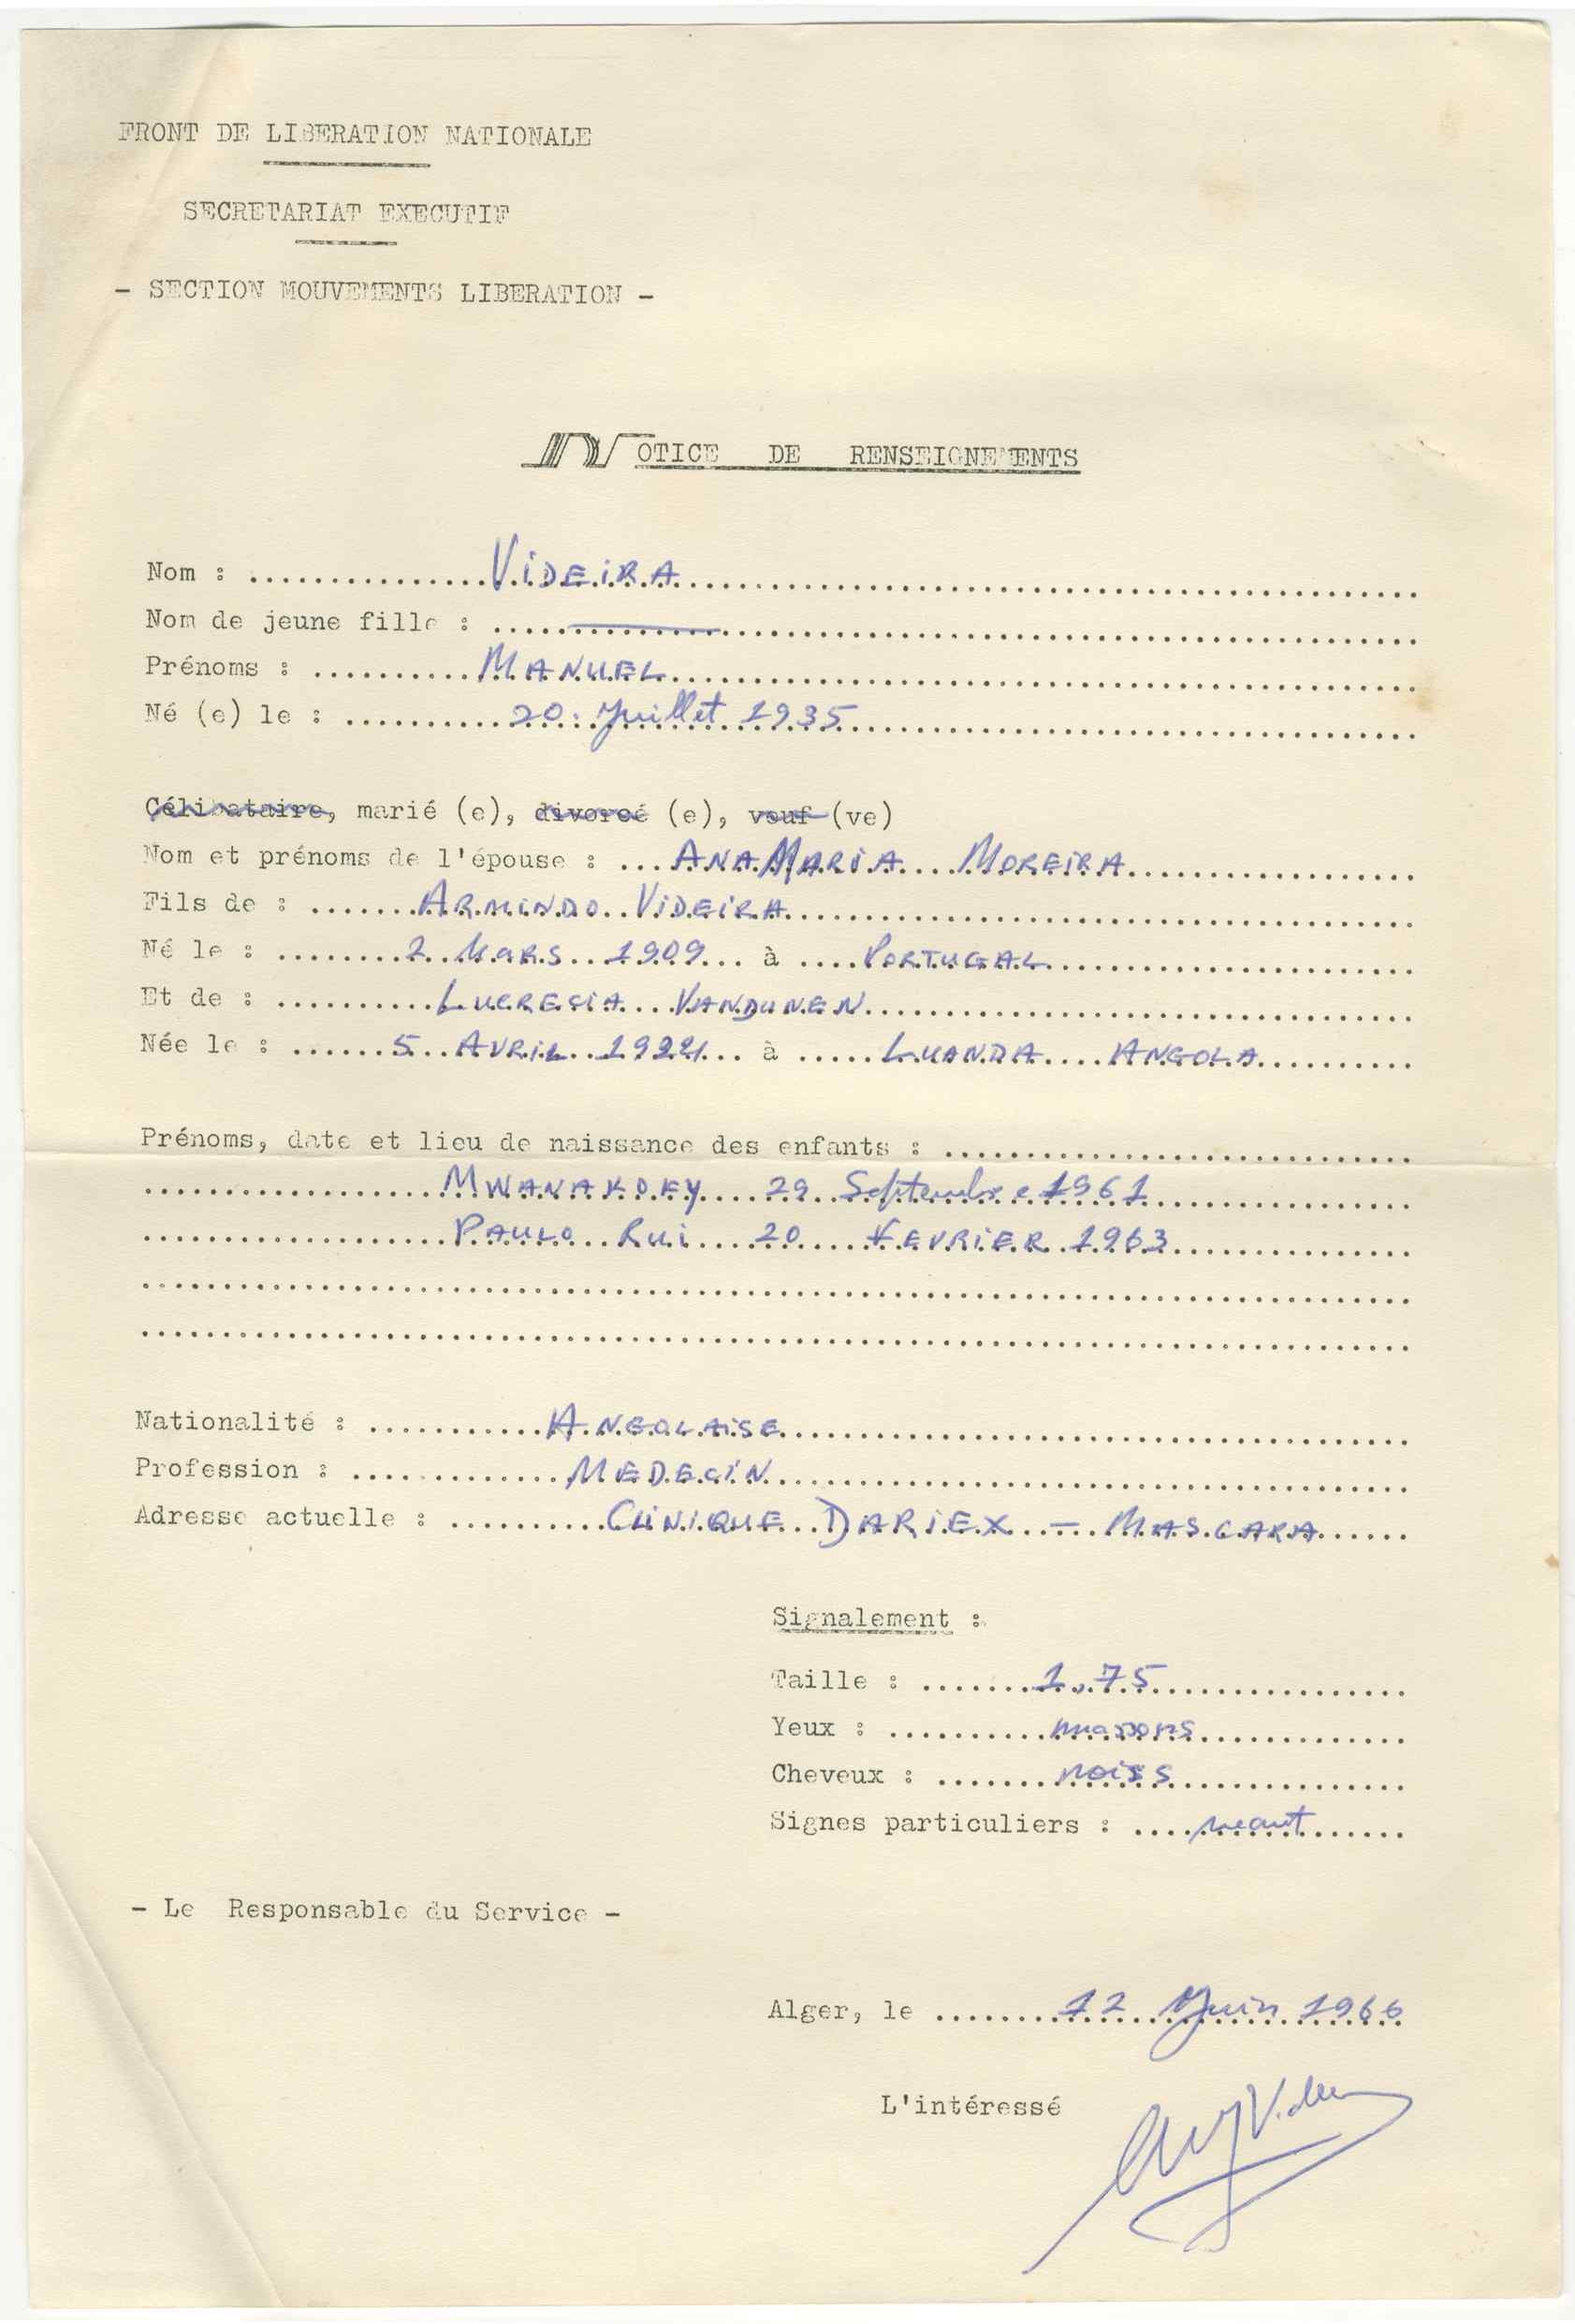 FRONT DE LIBERATION NATIONALE
SECRETARIAT EXECUTIF
- SECTION MOUVEMENTS LIBERATION -
NOTICE DE RENSEIGNEMENTS
Nom : VIDEIRA
Nom de jeune fille :
Prénoms : MANUEL
Né (e) le : 20 Juillet 1935
Célibataire, marié (e), divorcé (e), veuf (ve)
Nom et prénoms de l'épouse : ANA MARIA MOREIRA
Fils de : ARMINDO VIDEIRA
Né le : 2 MARS 1909 à PORTUGAL
Et de : LUCRECIA VANDUNEN
Née le : 5 AVRIL à LUANDA ANGOLA
Prénoms, date et lieu de naissance des enfants :
29 Septembre 1961
PAULO RUI 20 FEVRIER 1963
Nationalité : ANGOLAISE
Profession : MEDECIN
Adresse actuelle : CLINIQUE DARIEX - MASCARA
Signalement :
Taille : 1,75
Yeux : marrons
Cheveux : noirs
Signes particuliers : neant
- Le Responsable du Service -
Alger, le 12 Juin 1966
L'intéressé